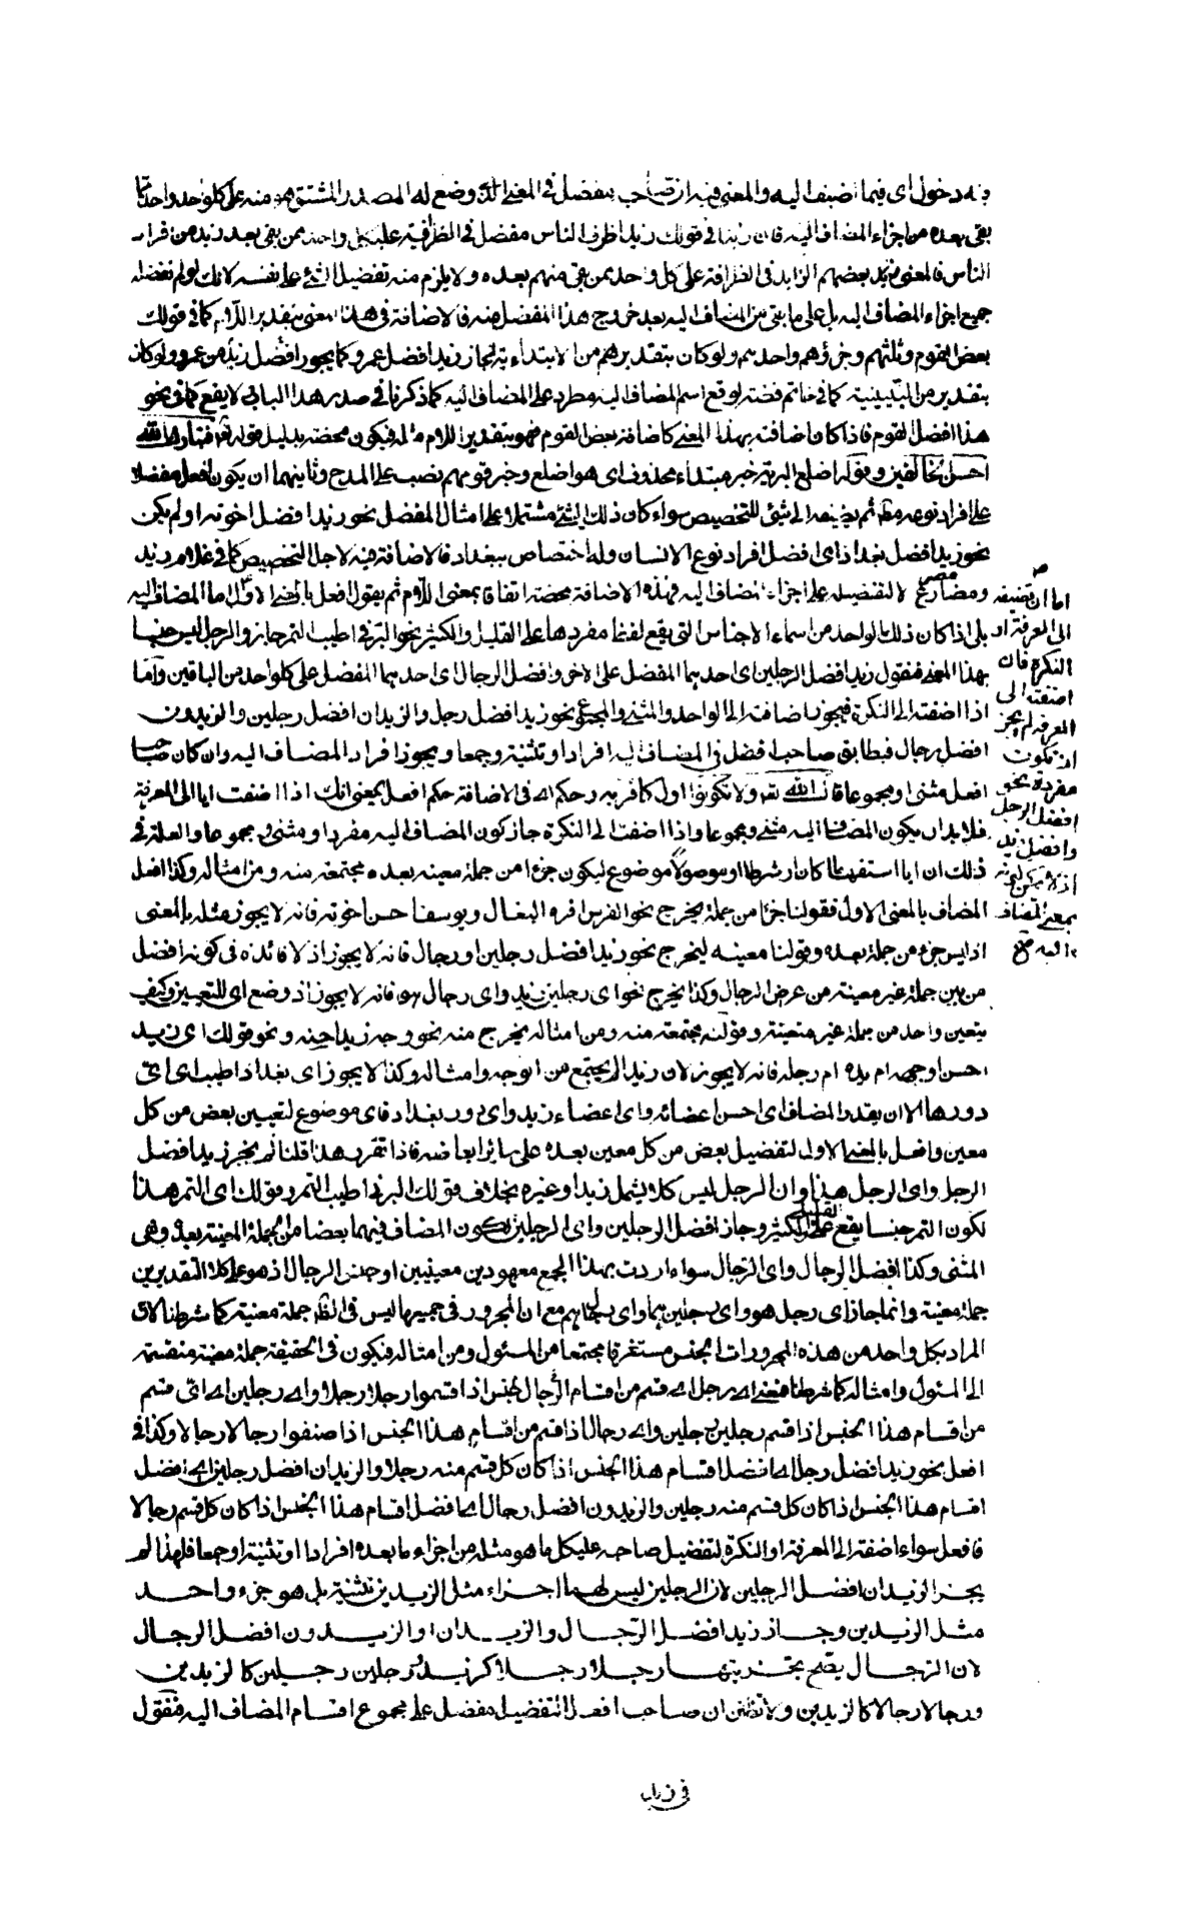 فيه دخول اى فيما اضيف اليه والمعنى فيه ان صاحب مفضل فى المعنى الذى وضع له المصدر المشتق هو منه على كل واحد واحد مما
بقى بعده من اجزاء المضاف اليه فان زيدا فى قولك زيد اظرف الناس مفضل فى الظرافة على كل واحد ممن بقى بعد زيد من افراد
الناس فالمعنى بعضهم الزايد فى الظرافة على كل واحد ممن بقى منهم بعده ولا يلزم منه تفضيل الشئ على نفسه لانك لم تفضله
جميع اجزاء المضاف اليه بل على ما بقى من المضاف اليه بعد خروج هذا المفضل منه فالاضافة فى هذا المعنى بتقدير اللام كما فى قولك
بعض القوم وثلثهم وجزؤهم واحدهم ولو كان بتقدير من الابتدائية لجاز زيد افضل عمرو كما يجوز افضل زيد من عمرو ولو كان
بتقدير من التبيينية كما فى خاتم فضة لوقع اسم المضاف اليه مطردا على المضاف اليه كما ذكرنا فى صدر هذا الباب لا يقع كما فى نحو
هذا افضل القوم فاذا كان اضافته بهذا المعنى كاضافة بعض القوم فهو بتقدير اللام مثله فيكون محضة بدليل قوله تعالى فتبارك الله
احسن الخالقين وقوله اضلع البرية خبر مبتداء محذوف اى هو اضلع وخبر قومهم نصب على المدح وثانيهما ان يكون افعل مفضلا
على افراد نوعه مطلقا ثم يضيفه الى شئ للتخصيص سواء كان ذلك الشئ مشتملا على امثال المفضل نحو زيد افضل اخوته او لم يكن
نحو زيد افضل بغداد اى افضل افراد نوع الانسان وله اختصاص ببغداد فالاضافة فيه لاجل التخصيص كما فى غلام زيد
ومضارع مصر لا لتفضيله على اجزاء المضاف اليه فهذه الاضافة محضة اتفاقا بمعنى اللام ثم يقول افعل بالمعنى الاول اما المضاف اليه
اما ان تضيفه
الى المعرفة او
النكرة فان
اضفته الى
المعرفة لم يجز
ان تكون
مفردة نحو
افضل الرجل
وافضل زيد
بمعنى المضاف
بلى اذا كان ذلك الواحد من اسماء الاجناس التى يقع لفظ مفردها على القليل والكثير نحو البرنى اطيب التمر جاز والرجل ليس جنسا
بهذا المعنى فنقول زيد افضل الرجلين اى احدهما المفضل على الاخر وافضل الرجال اى احدهم المفضل على كل واحد من الباقين واما
اذا اضفته الى النكرة فيجوز اضافته الى الواحد والمثنى والمجموع نحو زيد افضل رجل والزيدان افضل رجلين والزيدون
افضل رجال فيطابق صاحب افضل فى المضاف اليه افرادا وتثنية وجمعا ويجوز افراد المضاف اليه وان كان صاحب
افعل مثنى او مجموعا قال الله تعالى ولا تكونوا اول كافر به وحكم اى فى الاضافة حكم افعل بمعنى انك اذا اضفت ايا الى المعرفة
فلابد ان يكون المضاف اليه مثنى ومجموعا واذا اضفت الى النكرة جاز كون المضاف اليه مفردا ومثنى ومجموعا والعلة فى
ذلك ان ايا استفهاما كان او شرطا او موصولا موضوع ليكون جزءا من جملة معينة بعده مجتمعة منه ومن امثاله وكذا افعل
المضاف بالمعنى الاول فقولنا جزءا من جملة يخرج نحو الفرس افره البغال ويوسف احسن اخوته فانه لا يجوز مثله بالمعنى
اذ ليس جزء من جملة بعده وقولنا معينه ليخرج نحو زيد افضل رجلين او رجال فانه لا يجوز اذ لا فائدة فى كونه افضل
من بين جملة غير معينة من عرض الرجال وكذا يخرج نحو اى رجلين زيد واى رجال هو فانه لا يجوز اذ وضع اى للتعيين وكيف
يتعين واحد من جملة غير متعينة وقوله مجتمعة منه ومن امثاله يخرج منه نحو وجه زيد احسنه ونحو قولك اى زيد
احسن اوجهه ام يده ام رجله فانه لا يجوز لان زيدا لم يجتمع من الوجه وامثاله وكذا لا يجوز اى بغداد اطيب اى اى
دورها الا ان يقدر المضاف اى احسن اعضائه واى اعضاء زيد واى دور بغداد فاى موضوع لتعيين بعض من كل
معين وافعل بالمعنى الاول لتفضيل بعض من كل معين بعده على سائر ابعاضه فاذا تقرر هذا قلنا لم يجز زيد افضل
الرجل واى الرجل هذا وان الرجل ليس كلا يشمل زيدا وغيره بخلاف قولك البرنى اطيب التمر وقولك اى التمر هذا
لكون التمر جنسا يقع على القليل والكثير وجاز افضل الرجلين واى الرجلين لكون المضاف فيهما بعضا من الجملة المعينة بعده وهى
المثنى وكذا افضل الرجال واى الرجال سواء اردت بهذا الجمع معهودين معينين او جنس الرجال اذ هو على كلا التقديرين
جملة معينة وانما جاز اى رجل هو واى رجلين هما واى رجال هم مع ان المجرور فى جميعها ليس فى الظاهر جملة معينة كما شرطنا لان
المراد بكل واحد من هذه المجرورات الجنس مستغرقا مجتمعا من المسئول ومن امثاله فيكون فى الحقيقة جملة معينة منقسمة
الى المسئول وامثاله كما شرطنا فمعنى اى رجل اى قسم من اقسام الرجال الجنس اذا قسموا رجلا رجلا واى رجلين اى اى قسم
من اقسام هذا الجنس اذا قسم رجلين رجلين واى رجال اذا قسم من اقسام هذا الجنس اذا صنفوا رجالا رجالا وكذا فى
افعل نحو زيد افضل رجل اى افضل اقسام هذا الجنس اذا كان كل قسم منه رجلا والزيدان افضل رجلين اى افضل
اقسام هذا الجنس اذا كان كل قسم منه رجلين والزيدون افضل رجال اى افضل اقسام هذا الجنس اذا كان كل قسم رجالا
فافعل سواء اضفته الى المعرفة او النكرة لتفضيل صاحبه على كل ما هو مثله من اجزاء ما بعده افرادا او تثنية او جمعا فلهذا لم
يجز الزيدان افضل الرجلين لان الرجلين ليس لهما اجزاء مثل الزيدين تثنية بل هو جزء واحد
مثل الزيدين وجاز زيد افضل الرجال والزيدان او الزيدون افضل الرجال
لان الرجال يصح تجزيتها رجلا رجلا كزيد ورجلين رجلين كالزيدين
ورجالا رجالا كالزيدين ولا تظنن ان صاحب افعل التفضيل مفضل على مجموع اقسام المضاف اليه فنقول